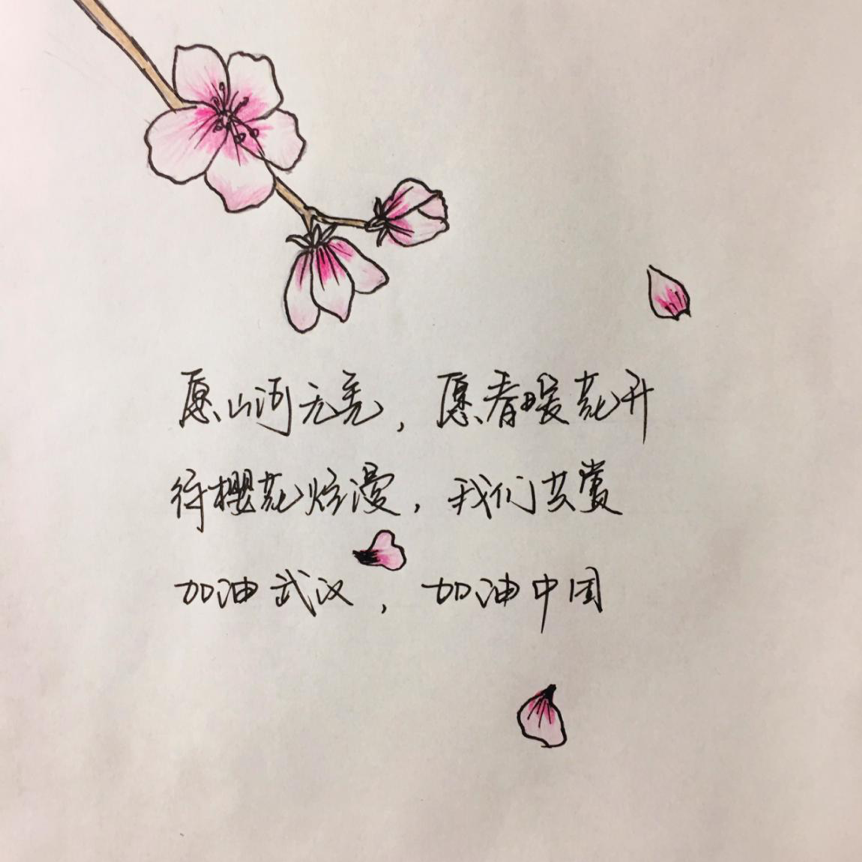 愿山河无恙，愿春暖花开
待樱花烂漫，我们共赏
加油武汉，加油中国